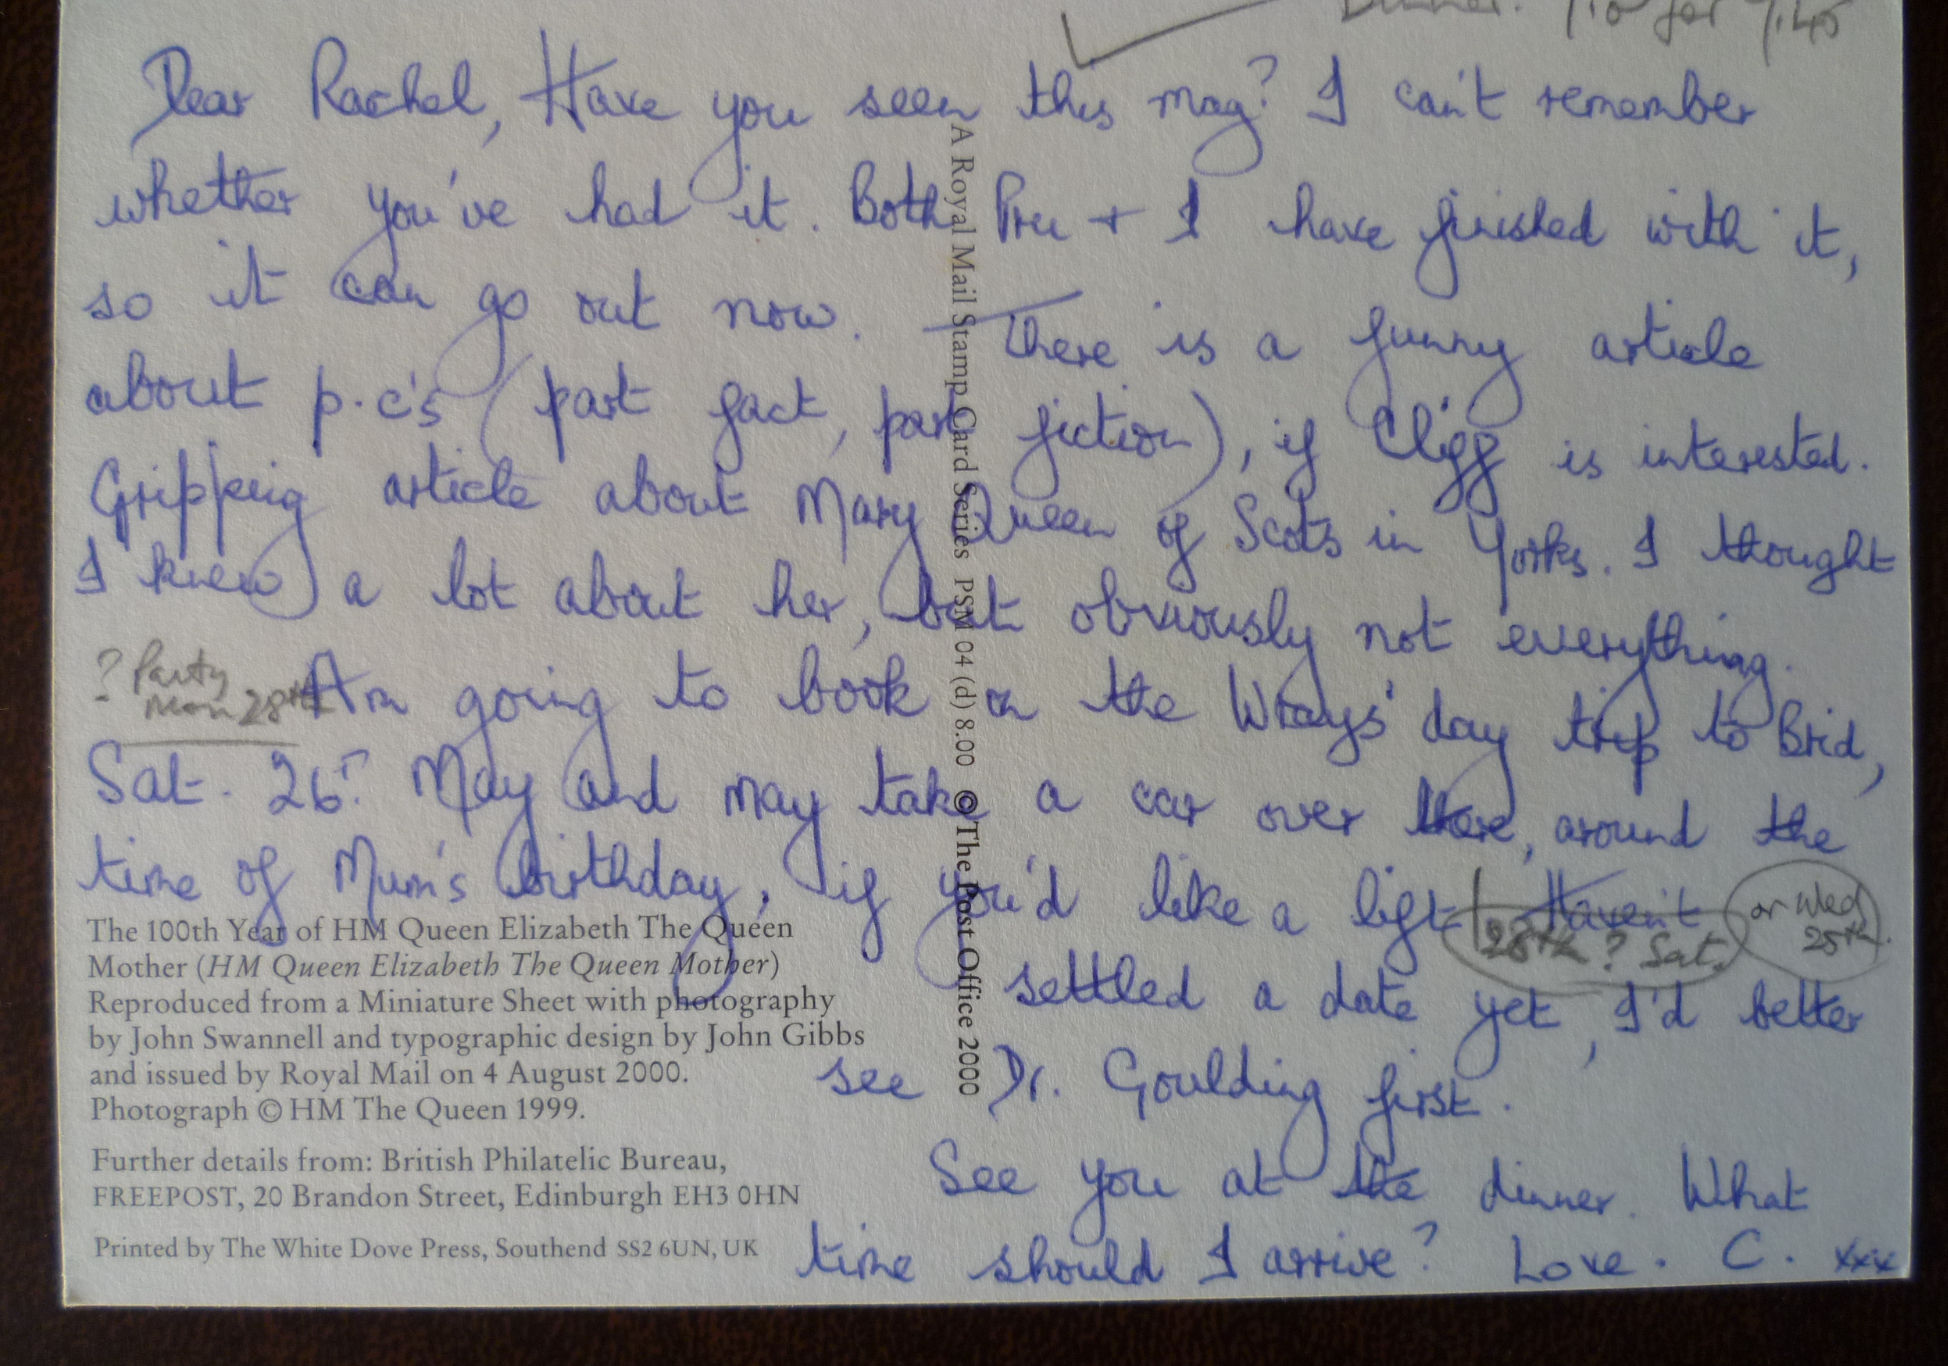 Dinner. 7.15 for 7.45
Dear Rachel, Have you seen this mag? I can't remember
whether you've had it. Both Pru + I have finished with it,
so it can go out now. There is a funny article
about p.c's (part fact, part fiction), if Cliff is interested.
Gripping article about Mary Queen of Scots in Yorks. I thought
I knew a lot about her, but obviously not everything.
? Party
Mon 28th
Am going to book on the Wrays' day trip to Brid,
Sat. 26th May and may take a car over there, around the
time of Mum's birthday, if you'd like a lift. Haven't
28th? Sat.
or Wed
25th.
settled a date yet, I'd better
see Dr. Goulding first.
See you at the dinner. What
time should I arrive? Love. C. xxx
The 100th Year of HM Queen Elizabeth The Queen
Mother (HM Queen Elizabeth The Queen Mother)
Reproduced from a Miniature Sheet with photography
by John Swannell and typographic design by John Gibbs
and issued by Royal Mail on 4 August 2000.
Photograph © HM The Queen 1999.
Further details from: British Philatelic Bureau,
FREEPOST, 20 Brandon Street, Edinburgh EH3 0HN
Printed by The White Dove Press, Southend SS2 6UN, UK
A Royal Mail Stamp Card Series PSM 04 (d) 8.00 © The Post Office 2000